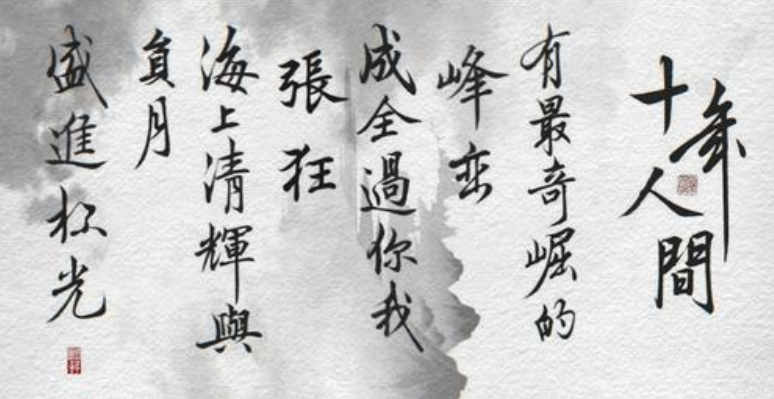 十年人間
有最奇崛的
峰峦
成全過你我
張狂
海上清輝與
員月
盛進杯光